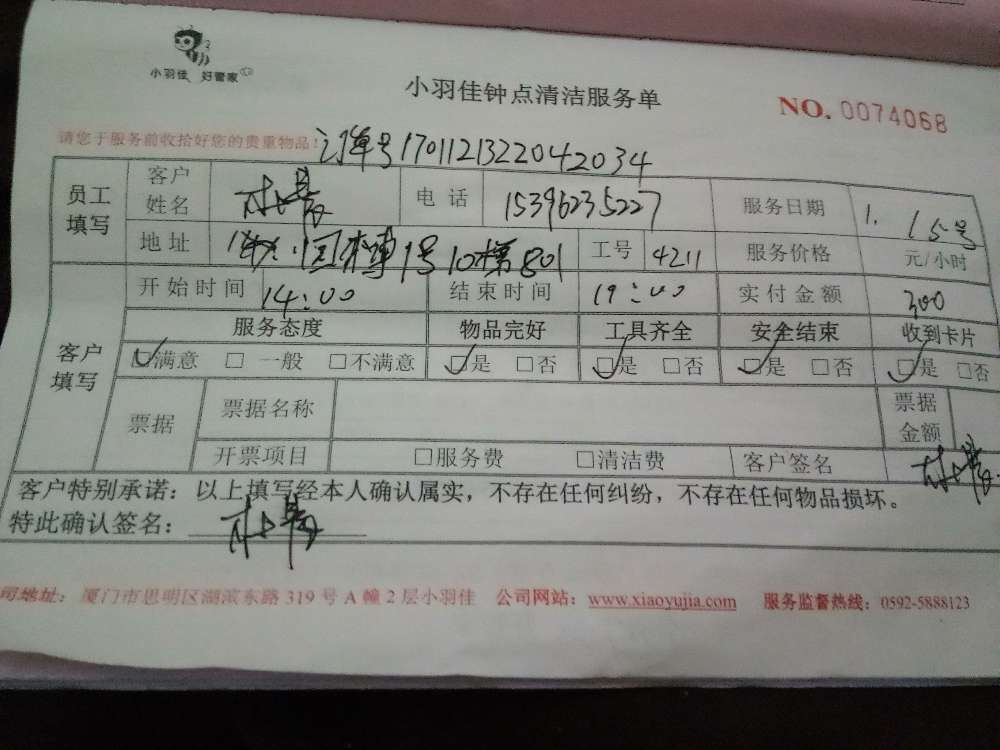 小羽佳 好管家
小羽佳钟点清洁服务单
NO. 0074068
请您于服务前收拾好您的贵重物品!
订单号1701121322042034
员工填写 客户姓名 电话 15396235227 服务日期 1. 15号
地址 1号10梯801 工号 4211 服务价格 元/小时
客户填写 开始时间 14:00 结束时间 19:00 实付金额 300
服务态度 物品完好 工具齐全 安全结束 收到卡片
☑满意 □一般 □不满意 ☑是 □否 ☑是 □否 ☑是 □否 ☑是 □否
票据 票据名称 票据金额
开票项目 □服务费 □清洁费 客户签名
客户特别承诺：以上填写经本人确认属实，不存在任何纠纷，不存在任何物品损坏。
特此确认签名：
司地址：厦门市思明区湖滨东路319号A幢2层小羽佳 公司网站：www.xiaoyujia.com 服务监督热线：0592-5888123